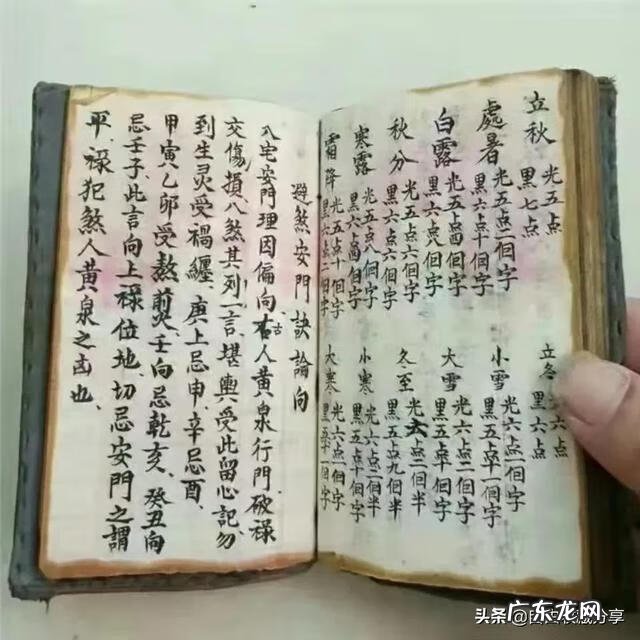 立秋 光五点
黑七点
處暑 光五点二個字
黑六点十個字
白露 光五点四個字
黑六点八個字
秋分
黑六点
寒露 光五点八個字
黑六点四個字
霜降 光五点十個字
黑六点二個字
立冬 六点
黑六点
小雪 光六点一個字
黑五点十一個字
大雪 光六点二個字
黑五点十個字
冬至 光六点二個半
黑五点九個半
小寒 光六点二個字
黑五点十個字
大寒 光六点一個字
黑五点十一個字
避煞安門訣論向
八宅安門理因偏向、古人黃泉行門、破禄
交傷損八煞其列一言、堪輿受此留心記、勿
到生灵受禍纏、庚上忌申、辛忌酉、
甲寅乙卯受熬煎、壬向忌乾亥、癸丑向
忌壬子、此言向上禄位地、切忌安門之謂
平、禄犯煞人黃泉之凶也、
头条
广东龙网
分享